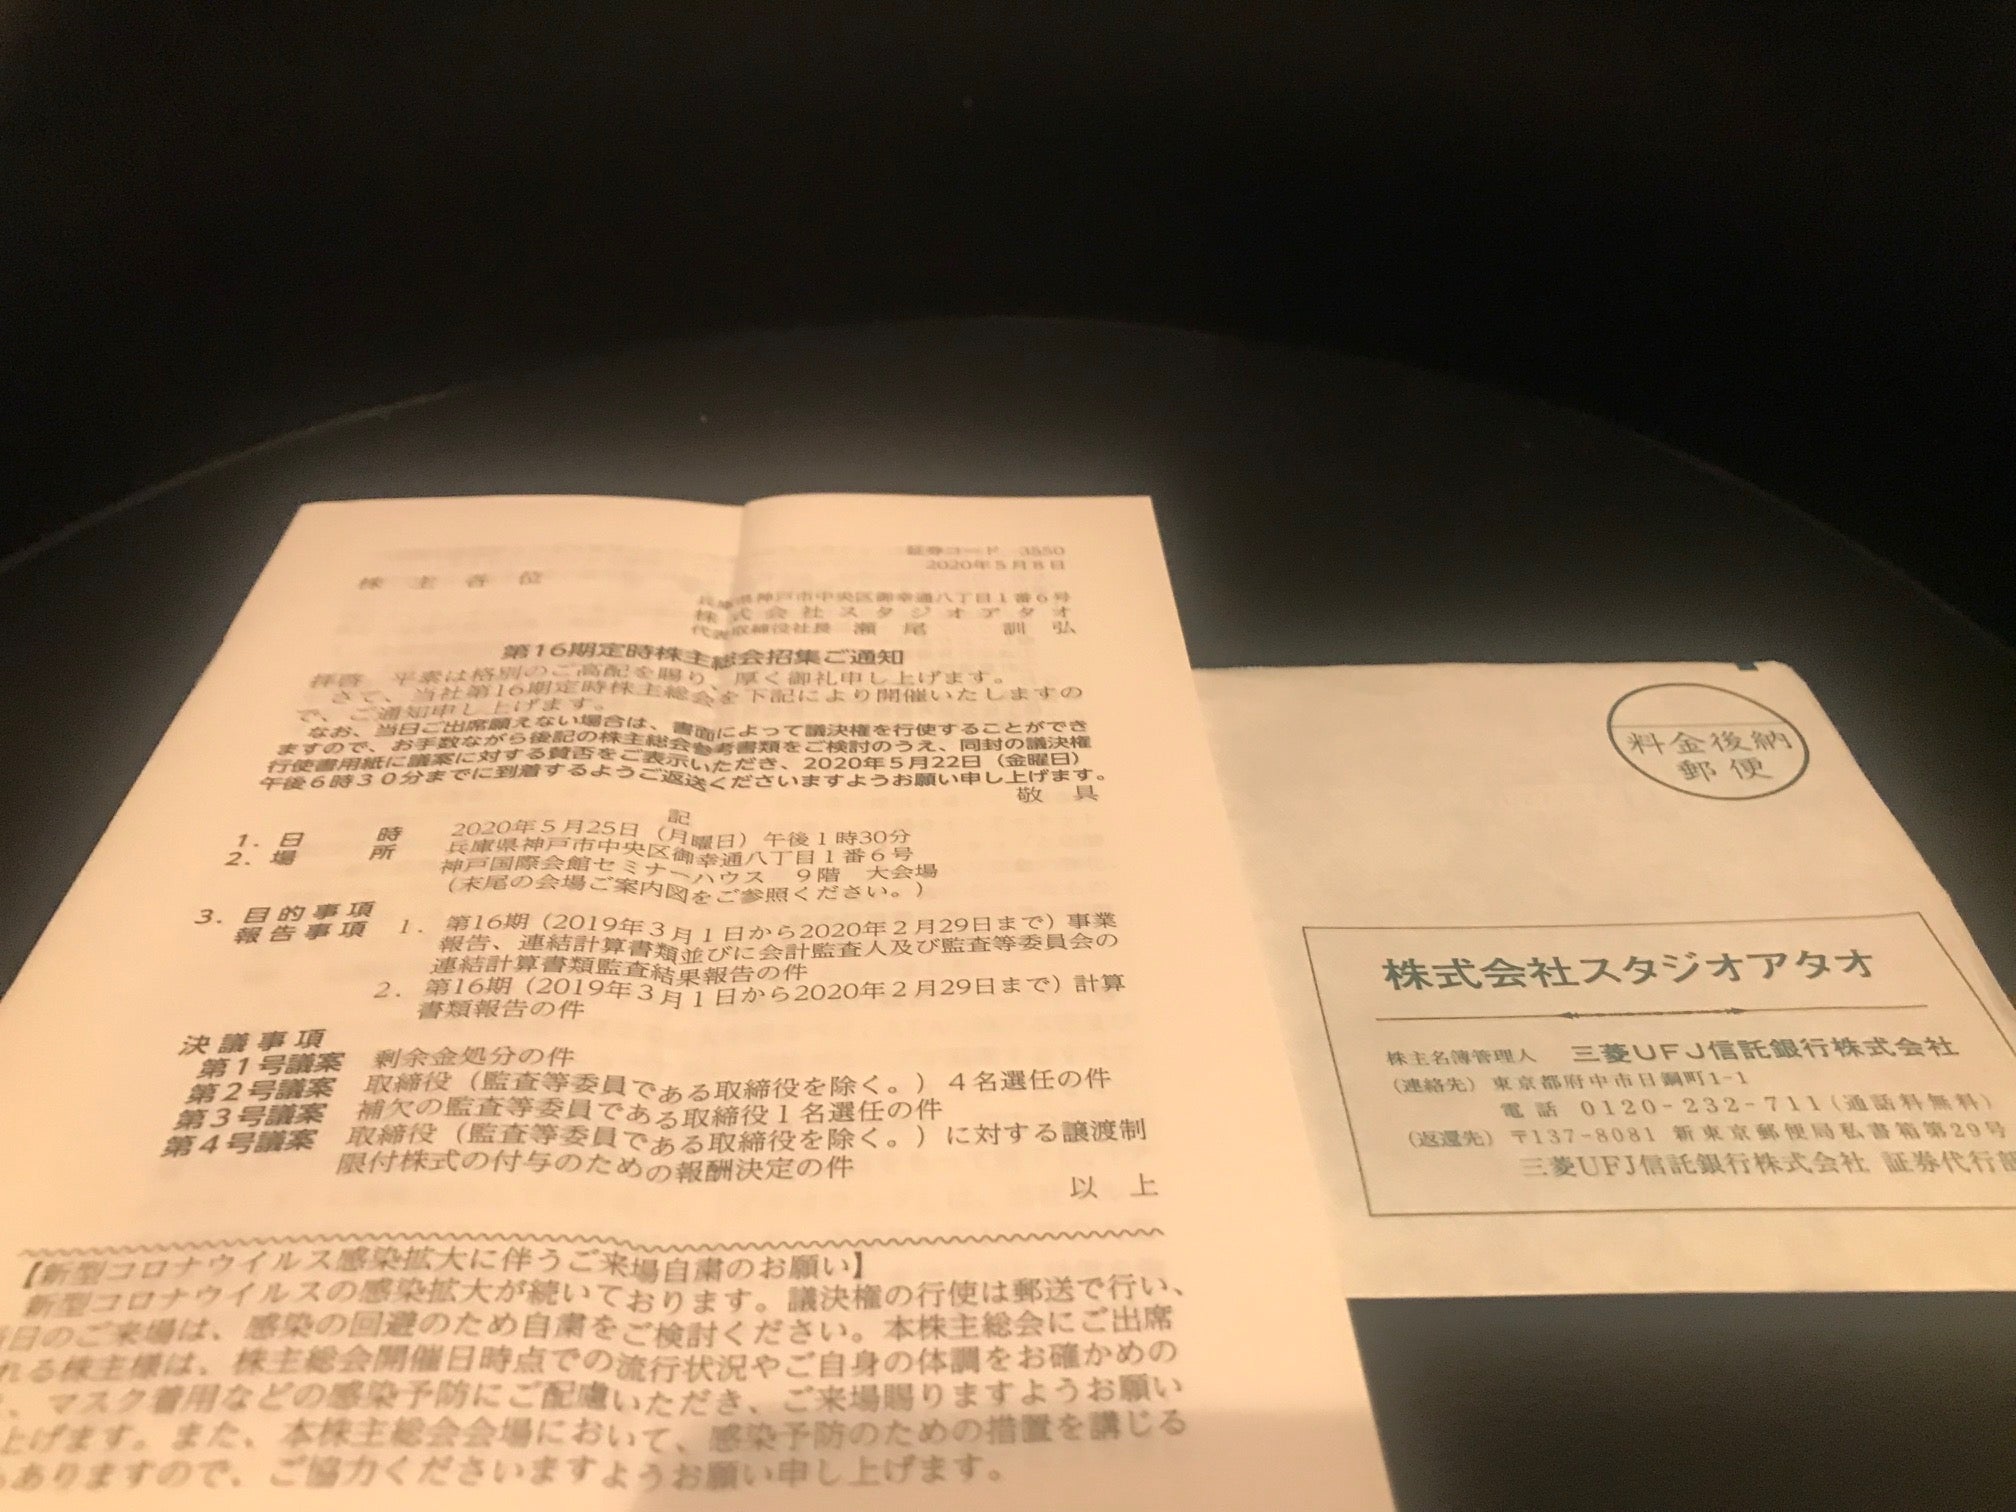 証券コード 3550
2020年5月8日
株主各位
兵庫県神戸市中央区御幸通八丁目1番6号
株式会社スタジオアタオ
代表取締役社長 瀬尾 訓弘
第16期定時株主総会招集ご通知
拝啓 平素は格別のご高配を賜り、厚く御礼申し上げます。
さて、当社第16期定時株主総会を下記により開催いたしますの
で、ご通知申し上げます。
なお、当日ご出席願えない場合は、書面によって議決権を行使することができ
ますので、お手数ながら後記の株主総会参考書類をご検討のうえ、同封の議決権
行使書用紙に議案に対する賛否をご表示いただき、2020年5月22日（金曜日）
午後6時30分までに到着するようご返送くださいますようお願い申し上げます。
敬 具
記
1. 日 時 2020年5月25日（月曜日）午後1時30分
2. 場 所 兵庫県神戸市中央区御幸通八丁目1番6号
神戸国際会館セミナーハウス 9階 大会場
（末尾の会場ご案内図をご参照ください。）
3. 目的事項
報告事項 1. 第16期（2019年3月1日から2020年2月29日まで）事業
報告、連結計算書類並びに会計監査人及び監査等委員会の
連結計算書類監査結果報告の件
2. 第16期（2019年3月1日から2020年2月29日まで）計算
書類報告の件
決議事項
第1号議案 剰余金処分の件
第2号議案 取締役（監査等委員である取締役を除く。）4名選任の件
第3号議案 補欠の監査等委員である取締役1名選任の件
第4号議案 取締役（監査等委員である取締役を除く。）に対する譲渡制
限付株式の付与のための報酬決定の件
以 上
【新型コロナウイルス感染拡大に伴うご来場自粛のお願い】
新型コロナウイルスの感染拡大が続いております。議決権の行使は郵送で行い、
当日のご来場は、感染の回避のため自粛をご検討ください。本株主総会にご出席
れる株主様は、株主総会開催日時点での流行状況やご自身の体調をお確かめの
、マスク着用などの感染予防にご配慮いただき、ご来場賜りますようお願い
上げます。また、本株主総会会場において、感染予防のための措置を講じる
もありますので、ご協力くださいますようお願い申し上げます。
料金後納
郵便
株式会社スタジオアタオ
株主名簿管理人 三菱UFJ信託銀行株式会社
（連絡先）東京都府中市日鋼町1-1
電話 0120-232-711（通話料無料）
（返還先）〒137-8081 新東京郵便局私書箱第29号
三菱UFJ信託銀行株式会社 証券代行部